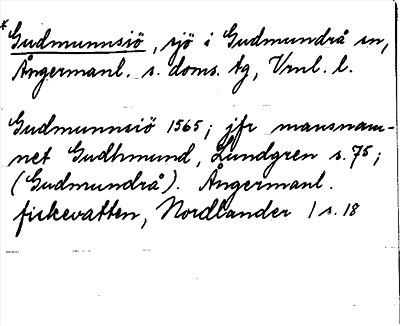 * Gudmunnsiö, sjö i Gudmundrå sn,
Ångermanl. s. doms. tg, Vrnl. l.
Gudmunnsiö 1565; jfr mansnam-
net Gudhmund, Lundgren s. 75;
(Gudmundrå). Ångermanl.
fiskevatten, Nordlander 1 s. 18